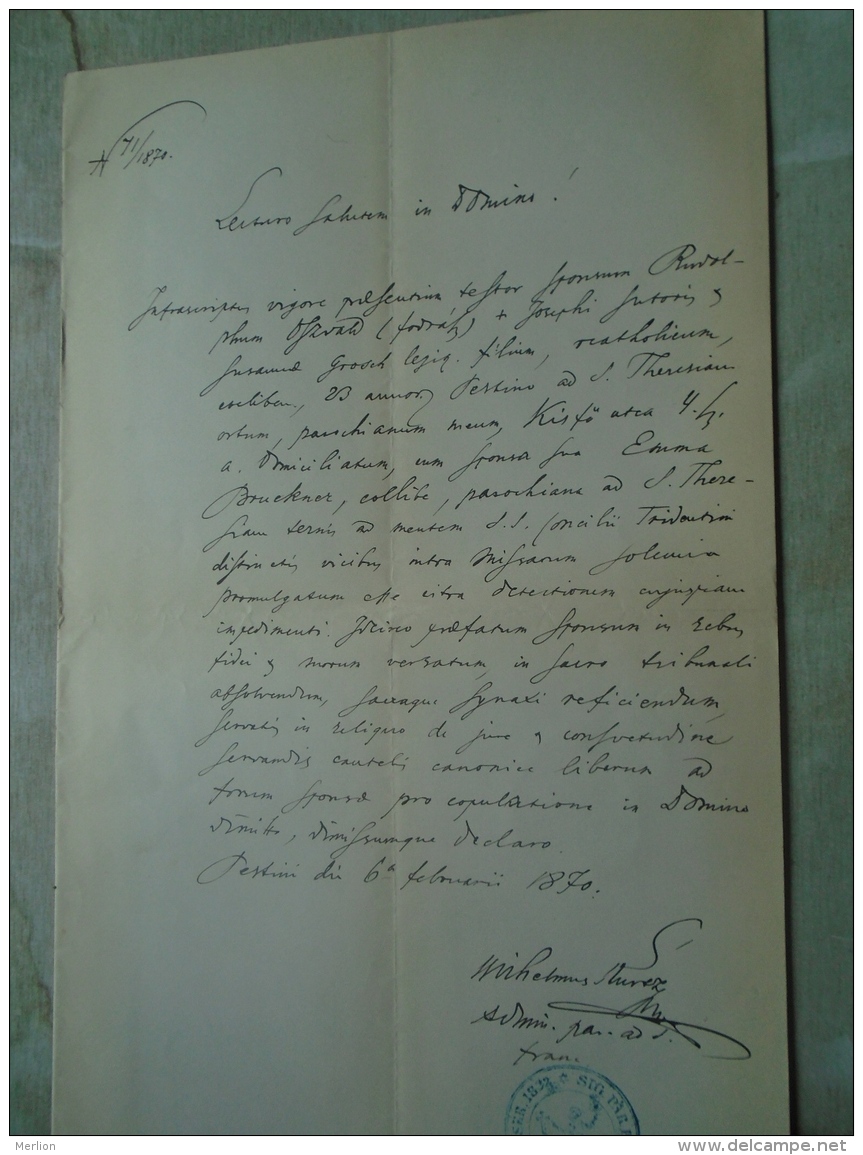 N 71/1870.
Lecturo Salutem in Domino!
Infrascriptus vigore præsentium testor Sponsum Rudol-
phum Oszvald (fodrász) + Josephi Sutoris &
Susannæ Grosch legig. filium, rcatholicum,
coelibem, 23 annor. Pestino ad S. Theresiam
ortum, parochianum meum, Kisfő utca 4. sz.
a. domiciliatum, cum Sponsa sua Emma
Bruckner, collibe, parochiana ad S. There-
siam ternis ad mentem S.S. Concilii Tridentini
distinctis vicibus intra Missarum solemnia
promulgatum esse citra detectionem cujuspiam
impedimenti. Idcirco præfatum Sponsum in rebus
fidei & morum versatum, in sacro tribunali
absolvendum, sacraque Synaxi reficiendum,
servatis in reliquo de jure & consvetudine
servandis cautelis canonice liberum ad
forum Sponsæ pro copulatione in Domino
dimitto, dimissumque declaro.
Pestini die 6a februarii 1870.
Wilhelmus
Admin. par. ad S.
Fran.
SIG. PAR.
Merlion
www.delcampe.net